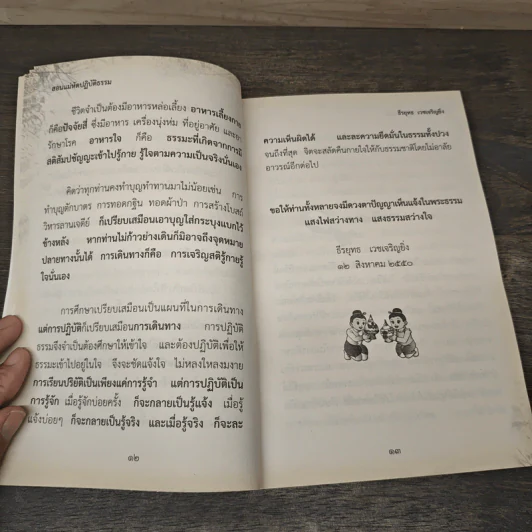 สอนแม่หัดปฏิบัติธรรม
ชีวิตจำเป็นต้องมีอาหารหล่อเลี้ยง อาหารเลี้ยงกาย
ก็คือปัจจัยสี่ ซึ่งมีอาหาร เครื่องนุ่งห่ม ที่อยู่อาศัย และยา
รักษาโรค อาหารใจ ก็คือ ธรรมะที่เกิดจากการมี
สติสัมปชัญญะเข้าไปรู้กาย รู้ใจตามความเป็นจริงนั่นเอง
คิดว่าทุกท่านคงทำบุญทำทานมาไม่น้อยเช่น การ
ทำบุญตักบาตร การทอดกฐิน ทอดผ้าป่า การสร้างโบสถ์
วิหารลานเจดีย์ ก็เปรียบเสมือนเอาบุญใส่กระบุงแบกไว้
ข้างหลัง หากท่านไม่ก้าวย่างเดินก็มิอาจถึงจุดหมาย
ปลายทางนั้นได้ การเดินทางก็คือ การเจริญสติรู้กายรู้
ใจนั่นเอง
การศึกษาเปรียบเสมือนเป็นแผนที่ในการเดินทาง
แต่การปฏิบัติก็เปรียบเสมือนการเดินทาง การปฏิบัติ
ธรรมจึงจำเป็นต้องศึกษาให้เข้าใจ และต้องปฏิบัติเพื่อให้
ธรรมะเข้าไปอยู่ในใจ จึงจะชัดแจ้งใจ ไม่หลงใหลงมงาย
การเรียนปริยัติเป็นเพียงแค่การรู้จำ แต่การปฏิบัติเป็น
การรู้จัก เมื่อรู้จักบ่อยครั้ง ก็จะกลายเป็นรู้แจ้ง เมื่อรู้
แจ้งบ่อยๆ ก็จะกลายเป็นรู้จริง และเมื่อรู้จริง ก็จะละ
๑๒
ธีรยุทธ เวชเจริญยิ่ง
ความเห็นผิดได้ และละความยึดมั่นในธรรมทั้งปวง
จนถึงที่สุด จิตจะสลัดคืนกายใจให้กับธรรมชาติโดยไม่อาลัย
อาวรณ์อีกต่อไป
ขอให้ท่านทั้งหลายจงมีดวงตาปัญญาเห็นแจ้งในพระธรรม
แสงไฟสว่างทาง แสงธรรมสว่างใจ
ธีรยุทธ เวชเจริญยิ่ง
๑๒ สิงหาคม ๒๕๕๐
๑๓